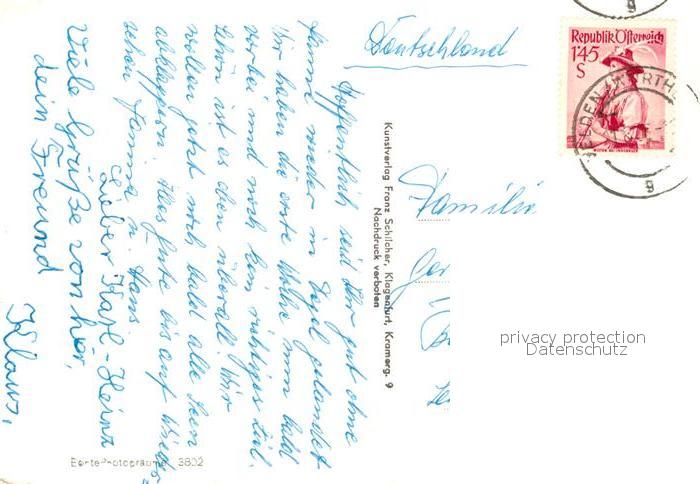 Hoffentlich seid Ihr gut ohne
Panne wieder in gelandet
Wir haben die erste Woche nun bald
vorbei und noch kein richtiges Ziel.
Schön ist es eben überall. Wir
wollen jetzt noch bald alle Seen
abklappern. Alles Gute bis auf Wieder-
sehen Hans
Lieber Karl-Heinz
Viele Grüße von hier,
dein Freund
Klaus.
Echte Photographie 3802
Kunstverlag Franz Schilcher, Klagenfurt, Kramerg. 9
Nachdruck verboten
Deutschland
Familie
Republik Österreich
1'45
S
VELDEN
g
g
privacy protection
Datenschutz